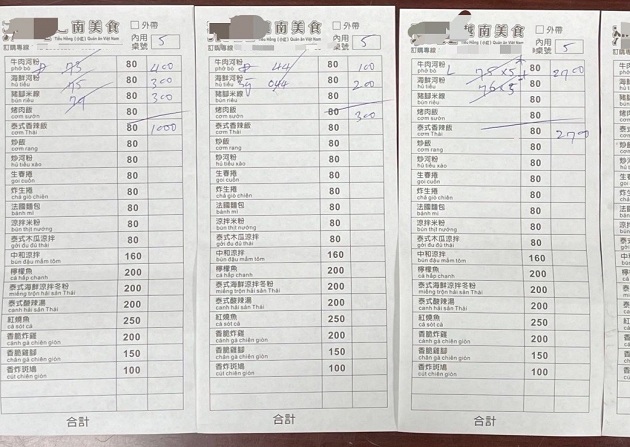 南美食 □ 外帶
Tiểu Hồng (小紅) Quán ăn Việt Nam
訂購專線
內用
桌號 5
牛肉河粉 80 400
phở bò
73
海鮮河粉 80 300
hủ tiếu
75
豬腳米線 80 300
bún riêu
74
烤肉飯 80
cơm sườn
泰式香辣飯 80 1000
cơm Thái
炒飯 80
cơm rang
炒河粉 80
hủ tiếu xào
生春捲 80
gỏi cuốn
炸生捲 80
chả giò chiên
法國麵包 80
bánh mì
涼拌米粉 80
bún thịt nướng
泰式木瓜涼拌 80
gỏi đu đủ thái
中和涼拌 160
bún đậu mắm tôm
檸檬魚 200
cá hấp chanh
泰式海鮮涼拌冬粉 200
miếng trộn hải sản Thái
泰式酸辣湯 200
canh chua Thái
紅燒魚 250
cá sốt cà
香脆炸雞 200
cánh gà chiên giòn
香脆雞腳 150
chân gà chiên giòn
香炸斑鳩 100
cút chiên giòn
合計
南美食 □ 外帶
Tiểu Hồng (小紅) Quán ăn Việt Nam
訂購專線
內用
桌號 5
牛肉河粉 80 100
phở bò
44
海鮮河粉 80 200
hủ tiếu
044
豬腳米線 80
bún riêu
烤肉飯 80 300
cơm sườn
泰式香辣飯 80
cơm Thái
炒飯 80
cơm rang
炒河粉 80
hủ tiếu xào
生春捲 80
gỏi cuốn
炸生捲 80
chả giò chiên
法國麵包 80
bánh mì
涼拌米粉 80
bún thịt nướng
泰式木瓜涼拌 80
gỏi đu đủ thái
中和涼拌 160
bún đậu mắm tôm
檸檬魚 200
cá hấp chanh
泰式海鮮涼拌冬粉 200
miếng trộn hải sản Thái
泰式酸辣湯 200
canh chua Thái
紅燒魚 250
cá sốt cà
香脆炸雞 200
cánh gà chiên giòn
香脆雞腳 150
chân gà chiên giòn
香炸斑鳩 100
cút chiên giòn
合計
南美食 □ 外帶
Tiểu Hồng (小紅) Quán ăn Việt Nam
訂購專線
內用
桌號 5
牛肉河粉 80 2700
phở bò
75×5
海鮮河粉 80
hủ tiếu
76×5
豬腳米線 80
bún riêu
烤肉飯 80
cơm sườn
泰式香辣飯 80 2700
cơm Thái
炒飯 80
cơm rang
炒河粉 80
hủ tiếu xào
生春捲 80
gỏi cuốn
炸生捲 80
chả giò chiên
法國麵包 80
bánh mì
涼拌米粉 80
bún thịt nướng
泰式木瓜涼拌 80
gỏi đu đủ thái
中和涼拌 160
bún đậu mắm tôm
檸檬魚 200
cá hấp chanh
泰式海鮮涼拌冬粉 200
miếng trộn hải sản Thái
泰式酸辣湯 200
canh chua Thái
紅燒魚 250
cá sốt cà
香脆炸雞 200
cánh gà chiên giòn
香脆雞腳 150
chân gà chiên giòn
香炸斑鳩 100
cút chiên giòn
合計